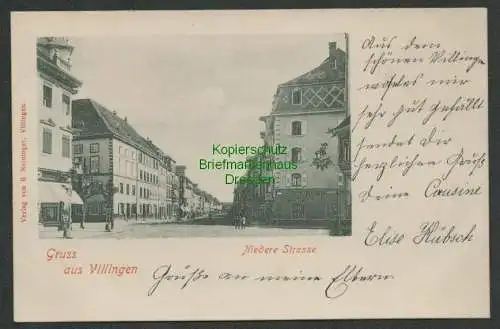 Aus dem
schönen Villinge
welches mir
sehr gut gefällt
sendet dir
herzlichen Gruß
deine Cousine
Elise Hübsch
Kopierschutz
Briefmarkenhaus
Dresden
Verlag von H. Neininger, Villingen.
Gruss
aus Villingen
Niedere Strasse
Grüße an meine Eltern